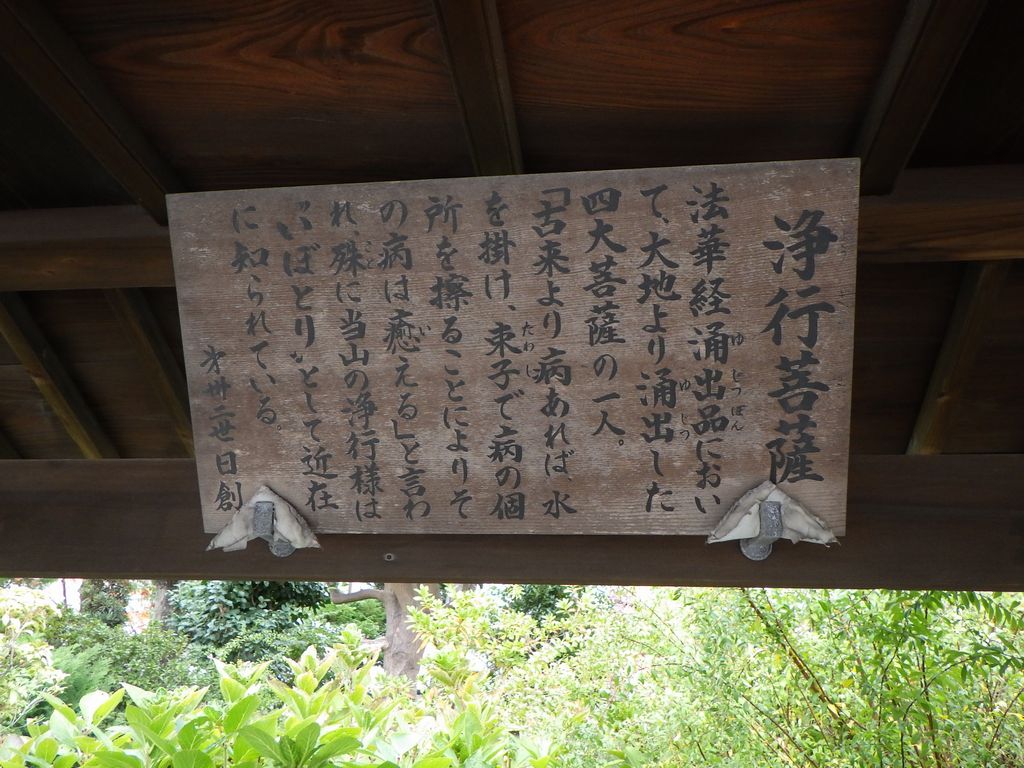 浄行菩薩
法華経涌出品におい
て、大地より涌出した
四大菩薩の一人。
「古来より病あれば、水
を掛け、束子で病の個
所を擦ることによりそ
の病は癒える」と言わ
れ、殊に当山の浄行様は
〝いぼとり〟として近在
に知られている。
才卅二世日創